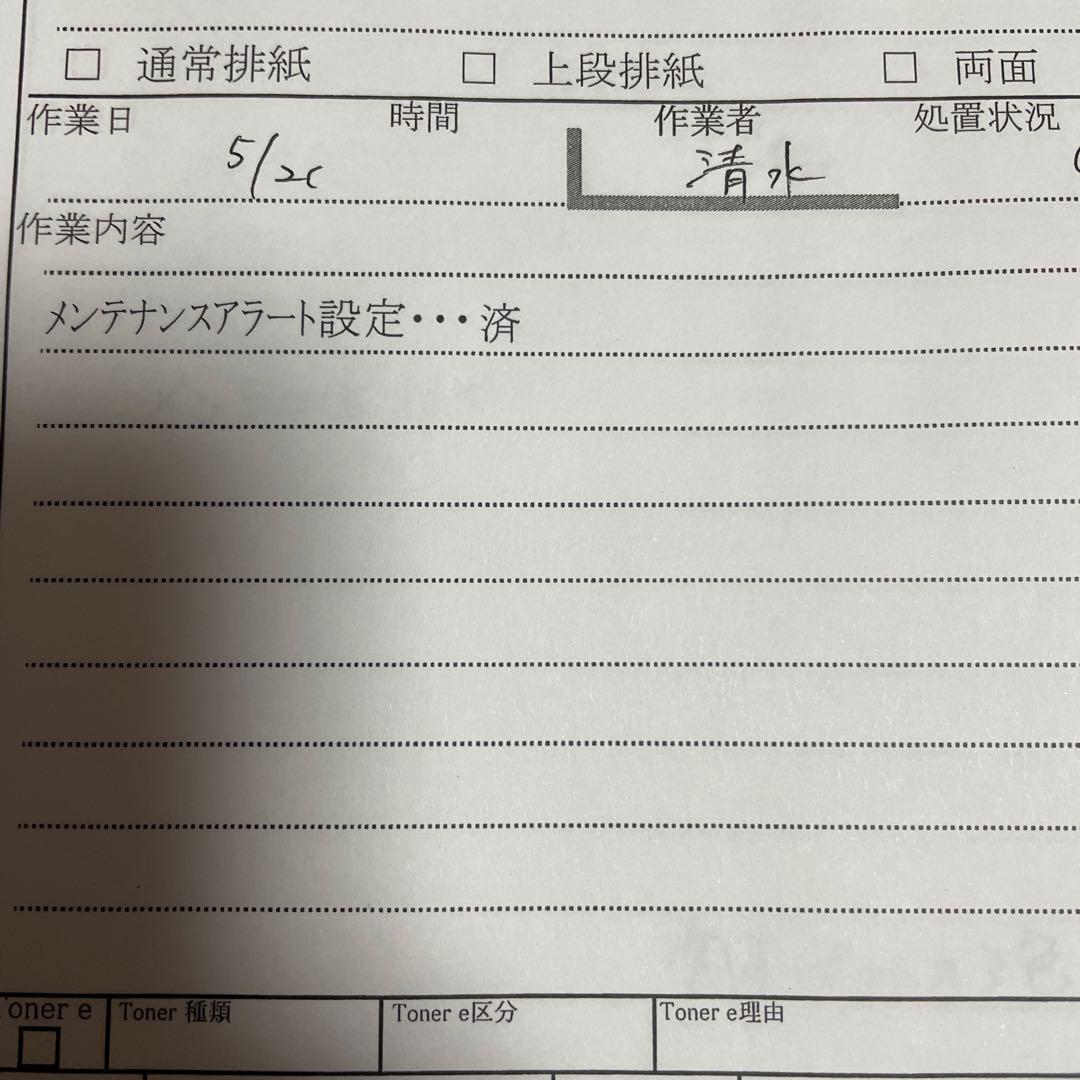 □ 通常排紙 □ 上段排紙 □ 両面
作業日 時間 作業者 処置状況
清水
作業内容
メンテナンスアラート設定・・・済
Toner 種類 Toner e区分 Toner e理由